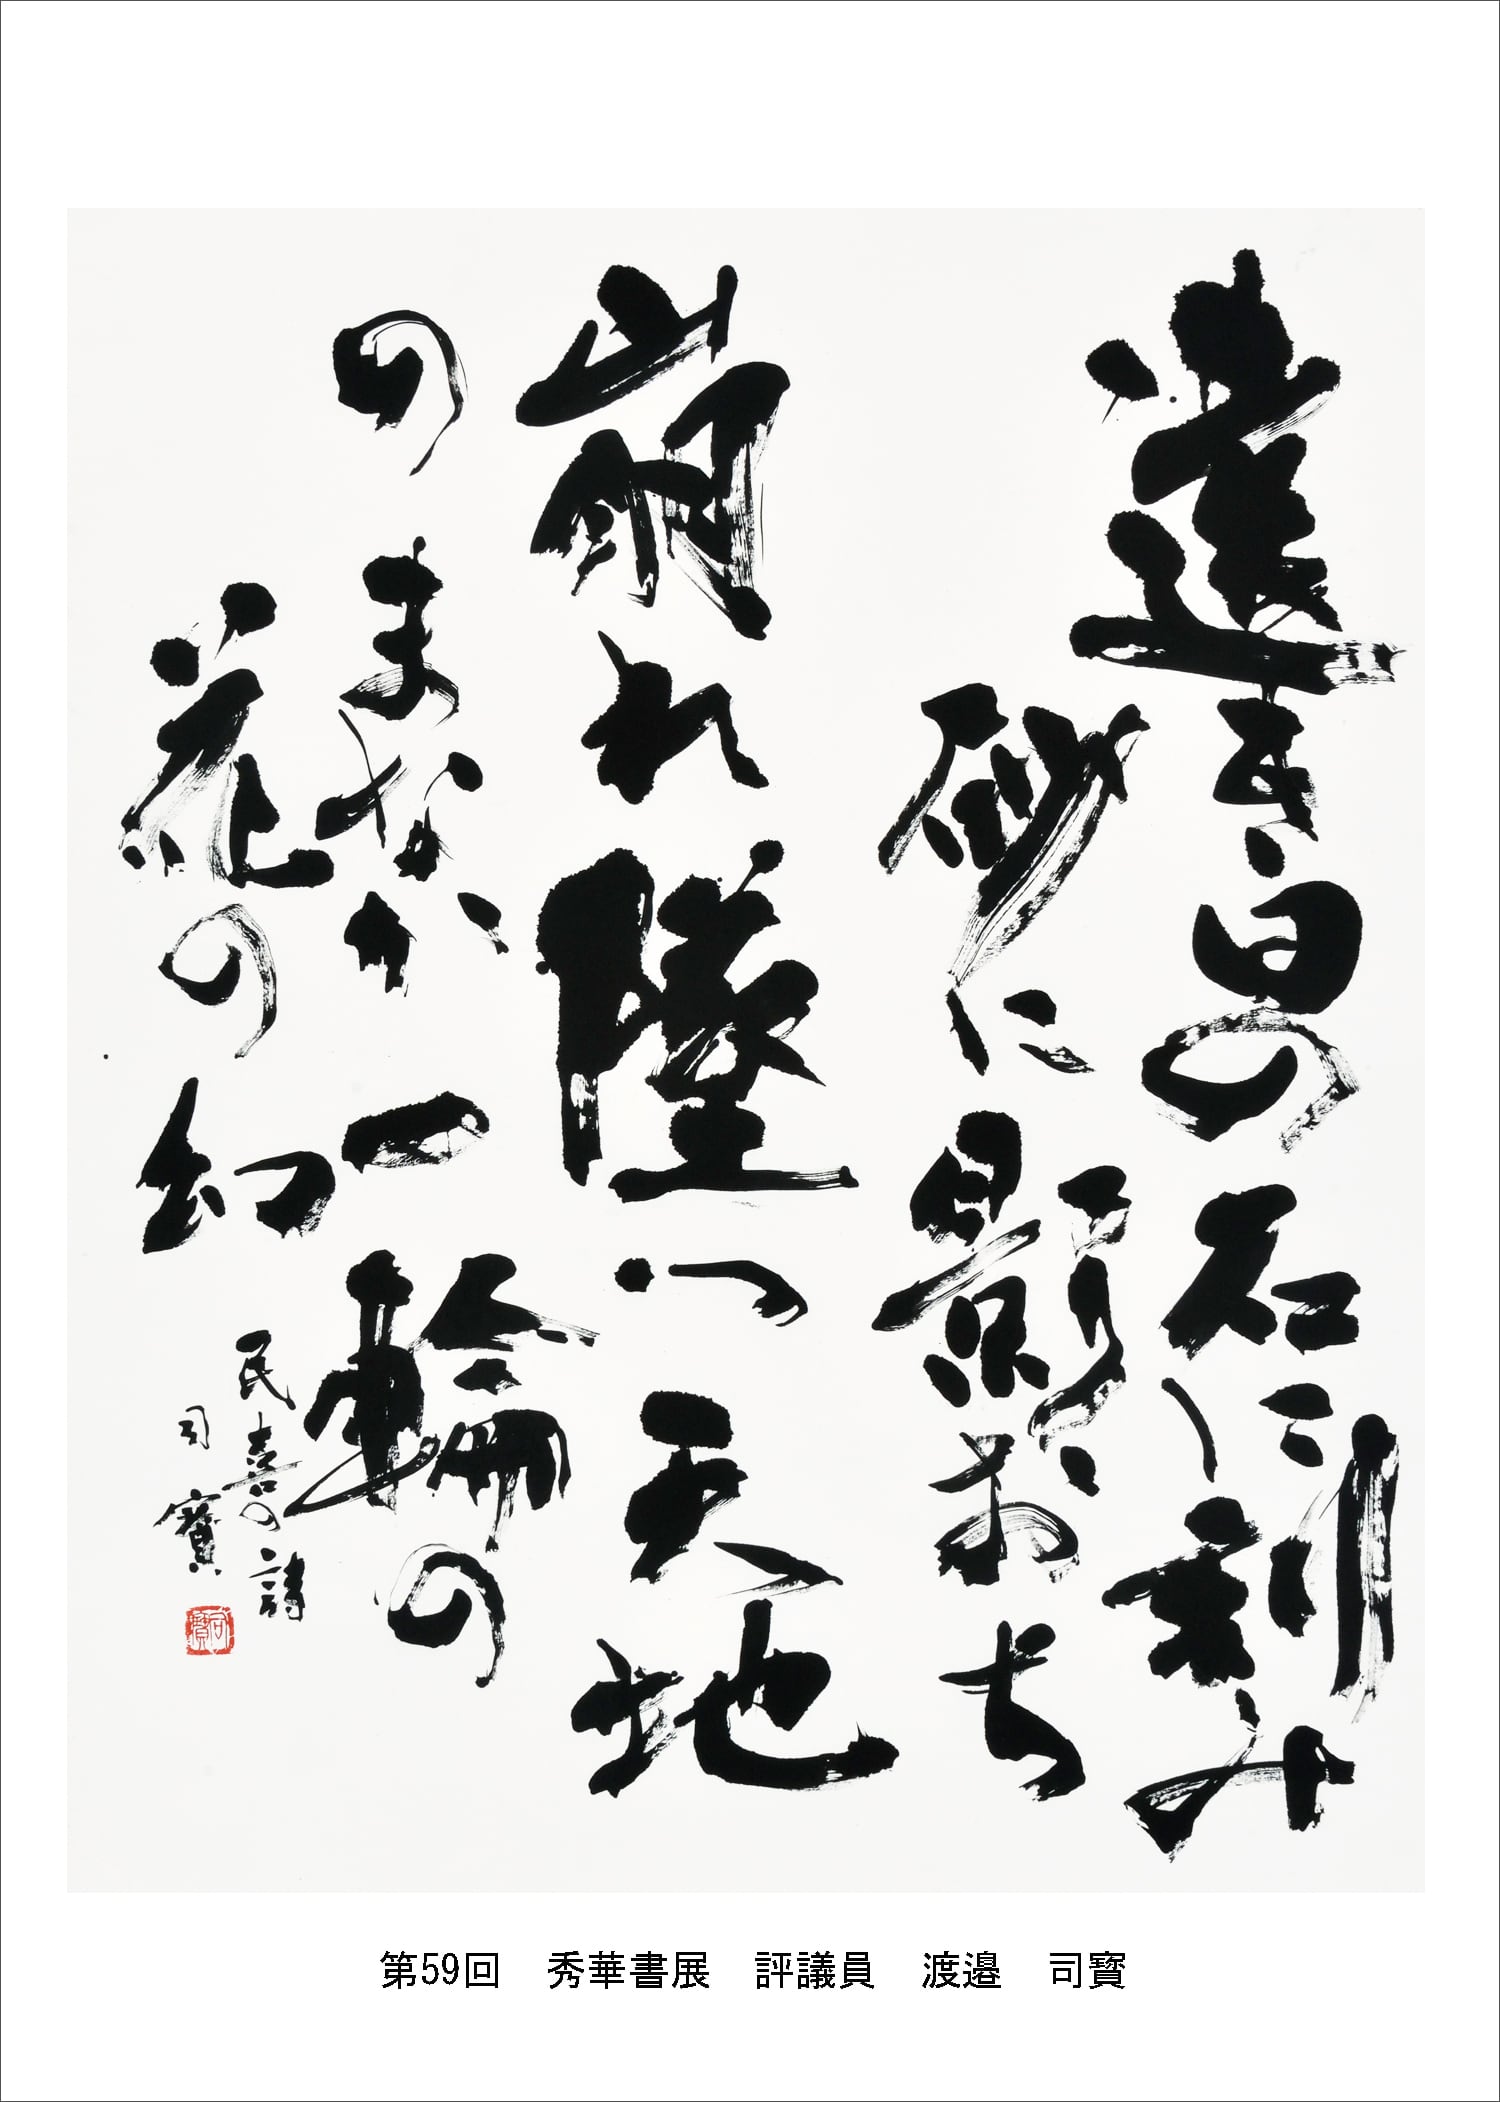 遠き日の石に刻み
砂に影おち
崩れ墜つ天地
のまなか一輪の
花の幻
民喜の詩
司寳
司寳
第59回 秀華書展 評議員 渡邉 司寳